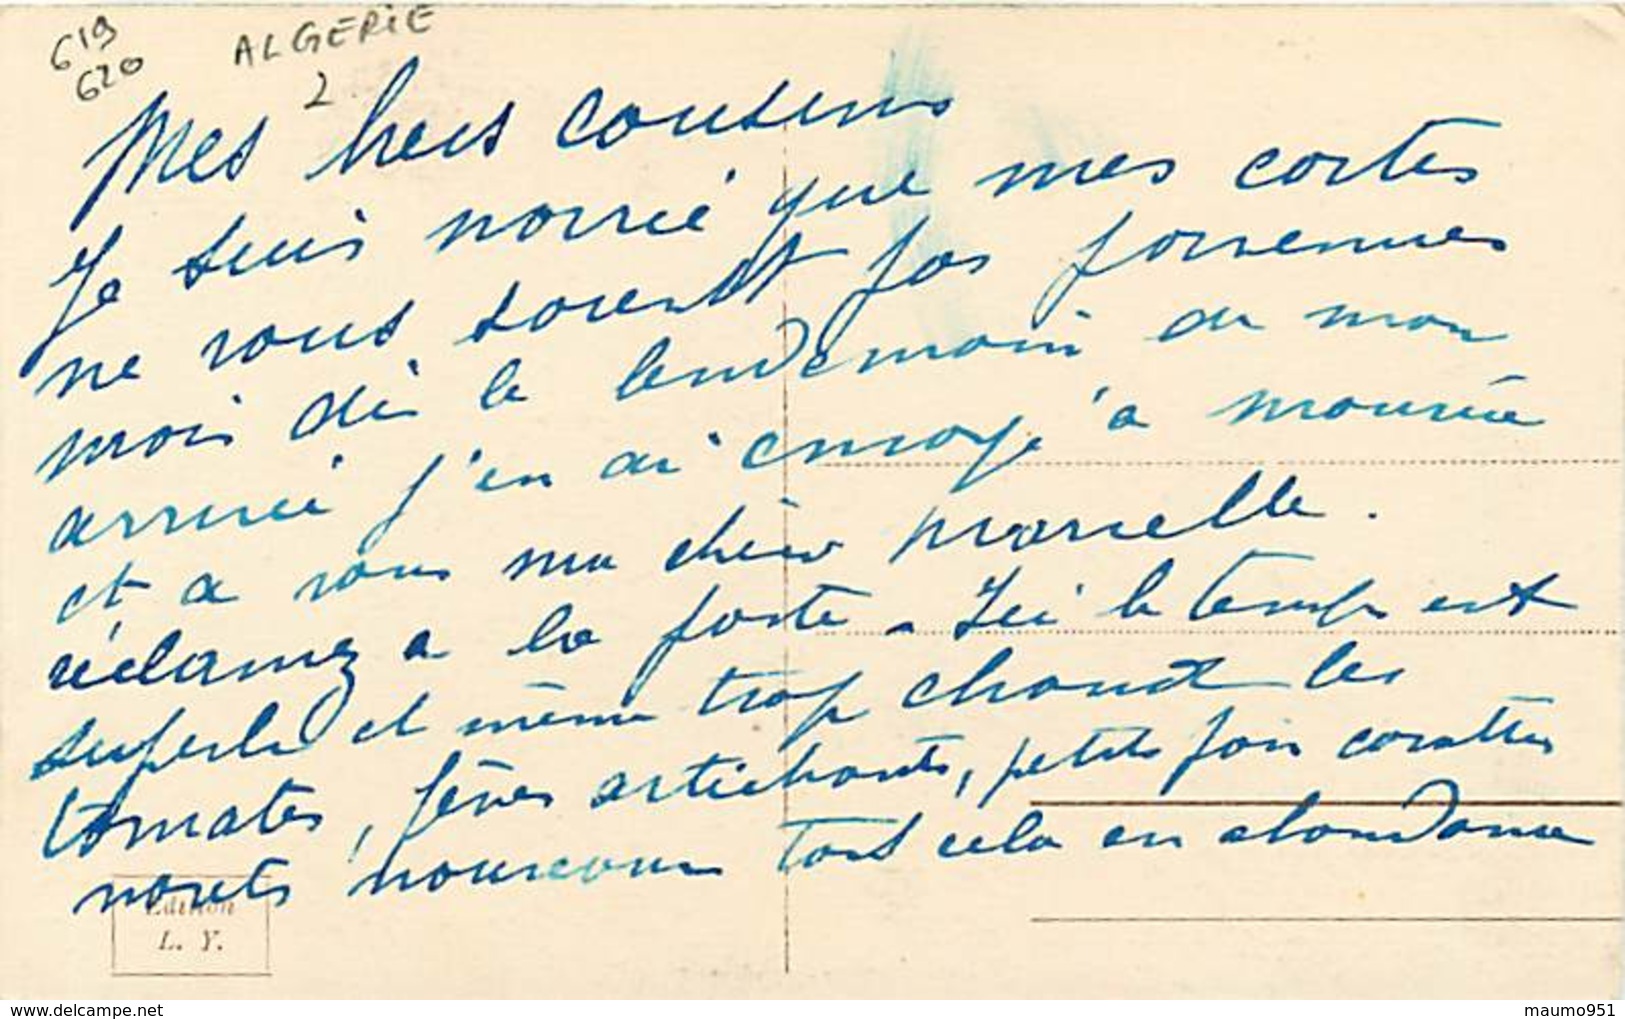 619
620
ALGERIE
2
Mes chers cousins
Je suis navrée que mes cartes
ne vous soient pas parvenues
mais dès le lendemain de mon
arrivée j'en ai envoyé à
et a vous ma chère Marcelle.
réclamez a la poste - Ici le temps est
superbe et même trop chaud les
tomates, fèves artichauts, petits pois carottes
navets tout cela en abondance
Edition
L. Y.
maumo951